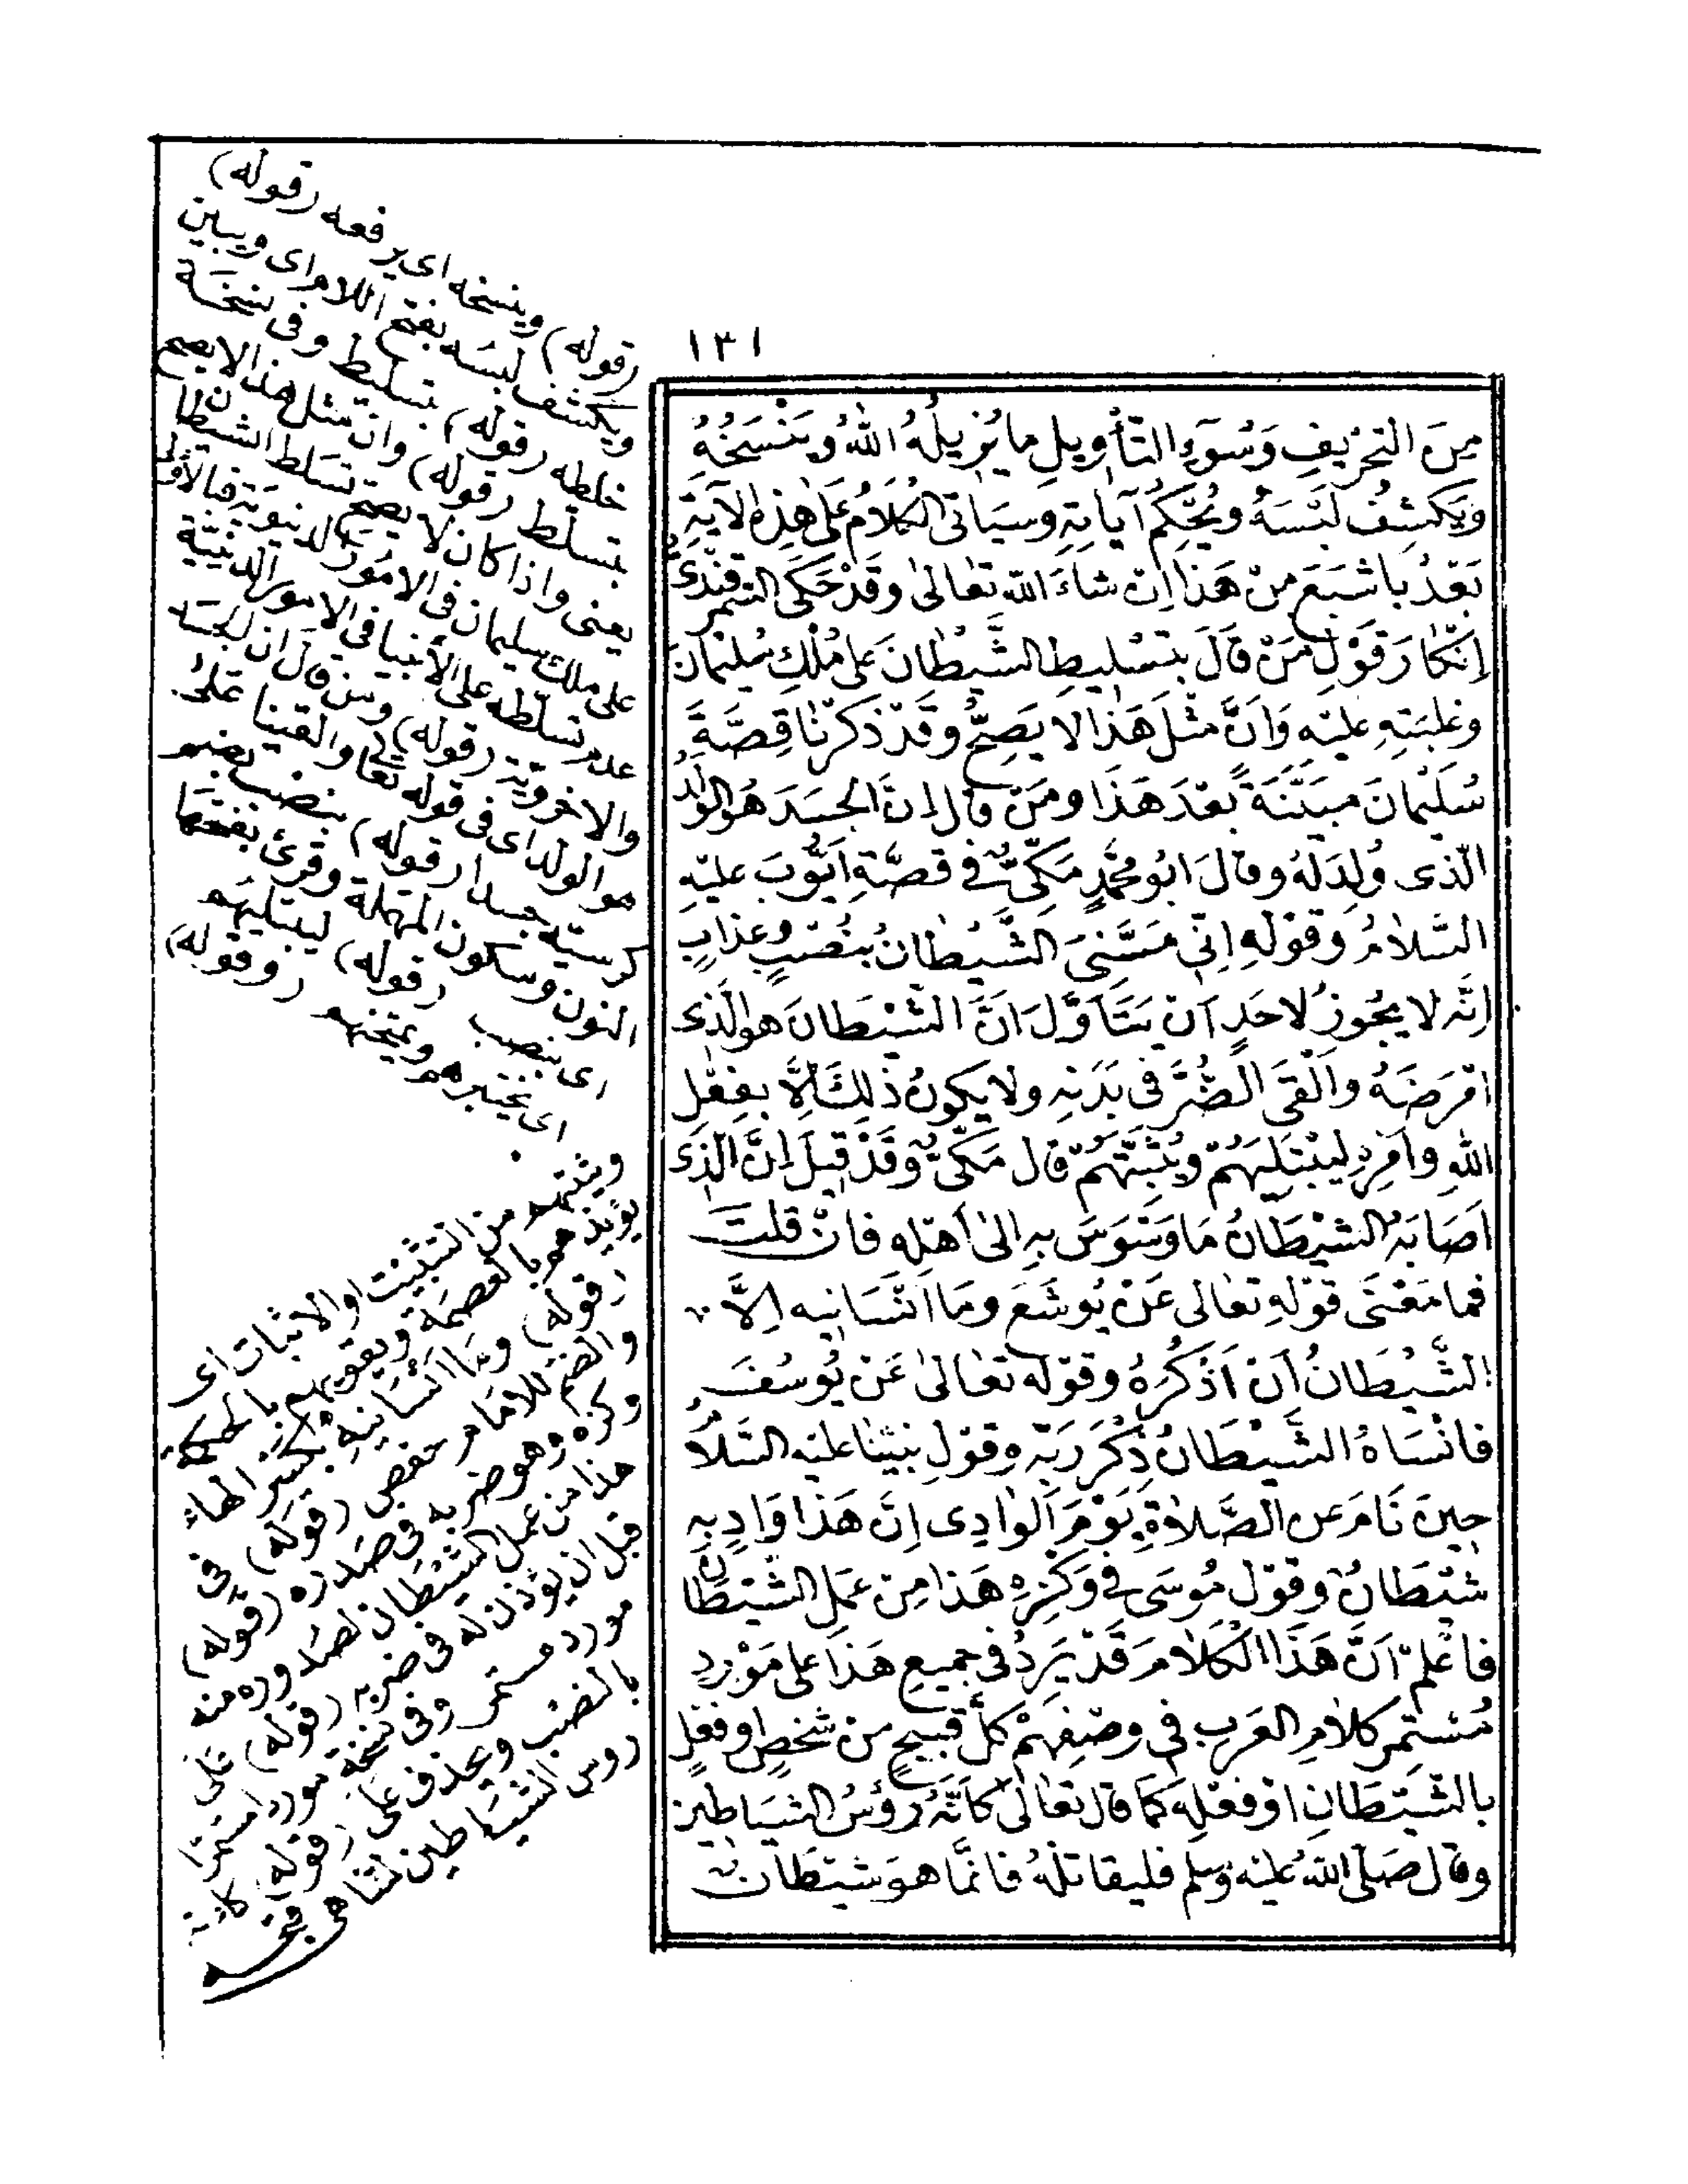 ١٣١
مِنَ التحْرِيفِ وَسُوءِ التَّأْوِيلِ ما يُزِيلُهُ اللهُ وَيَنْسَخُهُ
وَيَكْشِفُ لَبْسَهُ وَيُحْكِمُ آيَاتِهِ وسَيَأتى الكَلَامُ عَلَى هٰذِهِ الآيَةِ
بَعْدُ بِاَشْبَعَ مِنْ هَذَا اِنْ شاءَ الله تعَالىٰ وقَدْ حَكَى السَّمَرْقَنْدِىُّ
اِنْكَارَ قَوْلِ مَنْ قَالَ بِتَسْلِيطِ الشَّيْطَانِ عَلى مُلْكِ سُلَيْمَانَ
وغَلَبَتِهِ عليْهِ وَاَنَّ مثْلَ هَذَا لا يَصِحُّ وقَدْ ذَكَرْنَا قِصَّةَ
سُلَيْمَانَ مبَيَّنَةً بَعْدَ هَذَا ومَنْ قالَ اِنَّ الجسَدَ هوَ الوَلَدُ
الّذى وُلِدَ لَهُ وقالَ ابُو محُمَّدٍ مَكِّىٌّ فى قصَّةِ اَيُّوبَ عليْهِ
السَّلَامُ وقَوْلِهِ اِنِّى مَسَّنِىَ الشَّيْطَانُ بِنُصْبٍ وعَذَابٍ
اِنَّه لا يجُوزُ لاحَدٍ اَنْ يَتَأَوَّلَ اَنَّ الشَّيْطَانَ هوَ الَّذِى
اَمْرَضَهُ وَاَلْقَى الضُّرَّ فى بَدَنِهِ ولا يَكونُ ذٰلِكَ اِلَّا بفِعْلِ
اللهِ واَمْرِهِ لِيَبْتَلِيَهُمْ ويُثَبِّتَهُمْ قال مَكِّىٌّ وَقَدْ قِيلَ اِنَّ الَّذِى
اَصَابَهُ الشيْطَانُ مَا وَسْوَسَ بِهِ اِلىٰ اَهْلِهِ فاِنْ قلتَ
فما مَعْنَى قَوْلِهِ تعَالى عَنْ يُوشَعَ ومَا اَنْسَانِيه اِلَّا
الشَّيْطَانُ اَنْ اَذْكُرَهُ وقَوْلِه تعَالىٰ عَنْ يُوسُفَ
فاَنْسَاهُ الشَّيْطَانُ ذِكْرَ رَبِّه وقَوْلِ نبِيِّنَا عليْه السَّلَامُ
حِينَ نَامَ عن الصَّلَاةِ يَوْمَ الْوَادِى اِنَّ هَذَا وَادٍ بِهِ
شَيْطَانٌ وقَوْلِ مُوسَى فى وَكْزِهِ هَذَا مِنْ عَمَلِ الشَّيْطَانِ
فاعْلَمْ اَنَّ هَذَا الْكَلَامَ قَدْ يَرِدُ فى جميعِ هَذَا عَلى مَوْرِدِ
مُسْتَمِرِّ كَلَامِ العَرَبِ فى وصْفِهِمْ كلَّ قبيحٍ من شخْصٍ او فعْلٍ
بالشَّيْطَانِ اوْ فعْلِه كمَا قال تعَالىٰ كَاَنَّهُ رُؤسُ الشيَاطِينِ
وقال صَلّى اللهُ عليْه وسلم فليقاتلْهُ فانمَّا هوَ شيْطَانٌ
(قوله) وينسخه اى يرفعه (قوله)
ويكشف لبسه بفتح اللام اى ويبين
خلطه (قوله) بتسليط وفى نسخة
بتسلط (قوله) وان مثل هذا لا يصح
يعنى واذا كان لا يصح تسلط الشيطان
على ملك سليمان فى الامور الدنيوية فبالأولى
عدم تسلطه على الأنبيا فى الامور الدينية
والاخروية (قوله) ومن قال ان الجسد
هو الولد اى فى قوله تعالى والقينا على
كرسيه جسدا (قوله) بنصب بضم
النون وسكون المهملة وقرئ بفتحهما
اى بنصب (قوله) ليبتليهم
اى يختبرهم ويمتحنهم (وقوله)
ويثبتهم من التثبيت او الاثبات اى
يؤيدهم بالعصمة ويقويهم بالحكمة
(قوله) وما انسانيه بكسر الهاء
والضم للامام حفص (قوله) فى
وكزه وهو ضربه فى صدره (قوله)
هذا من عمل الشيطان لصدوره منه
قبل ان يؤذن له فى ضربه (قوله) على
مورد مستمر وفى نسخة مورد استمر
بالنصب وبحذف على (قوله) كانه
روس الشياطين لتناهى قبح